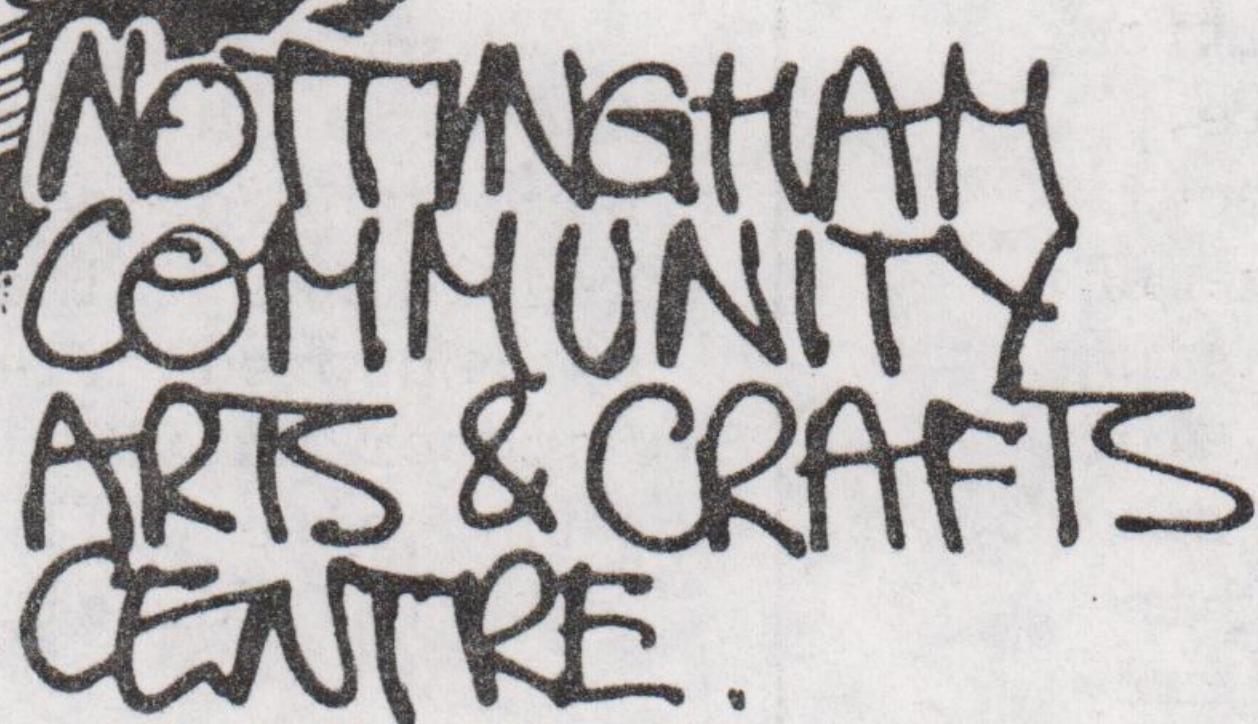 NOTTINGHAM
COMMUNITY
ARTS & CRAFTS
CENTRE.